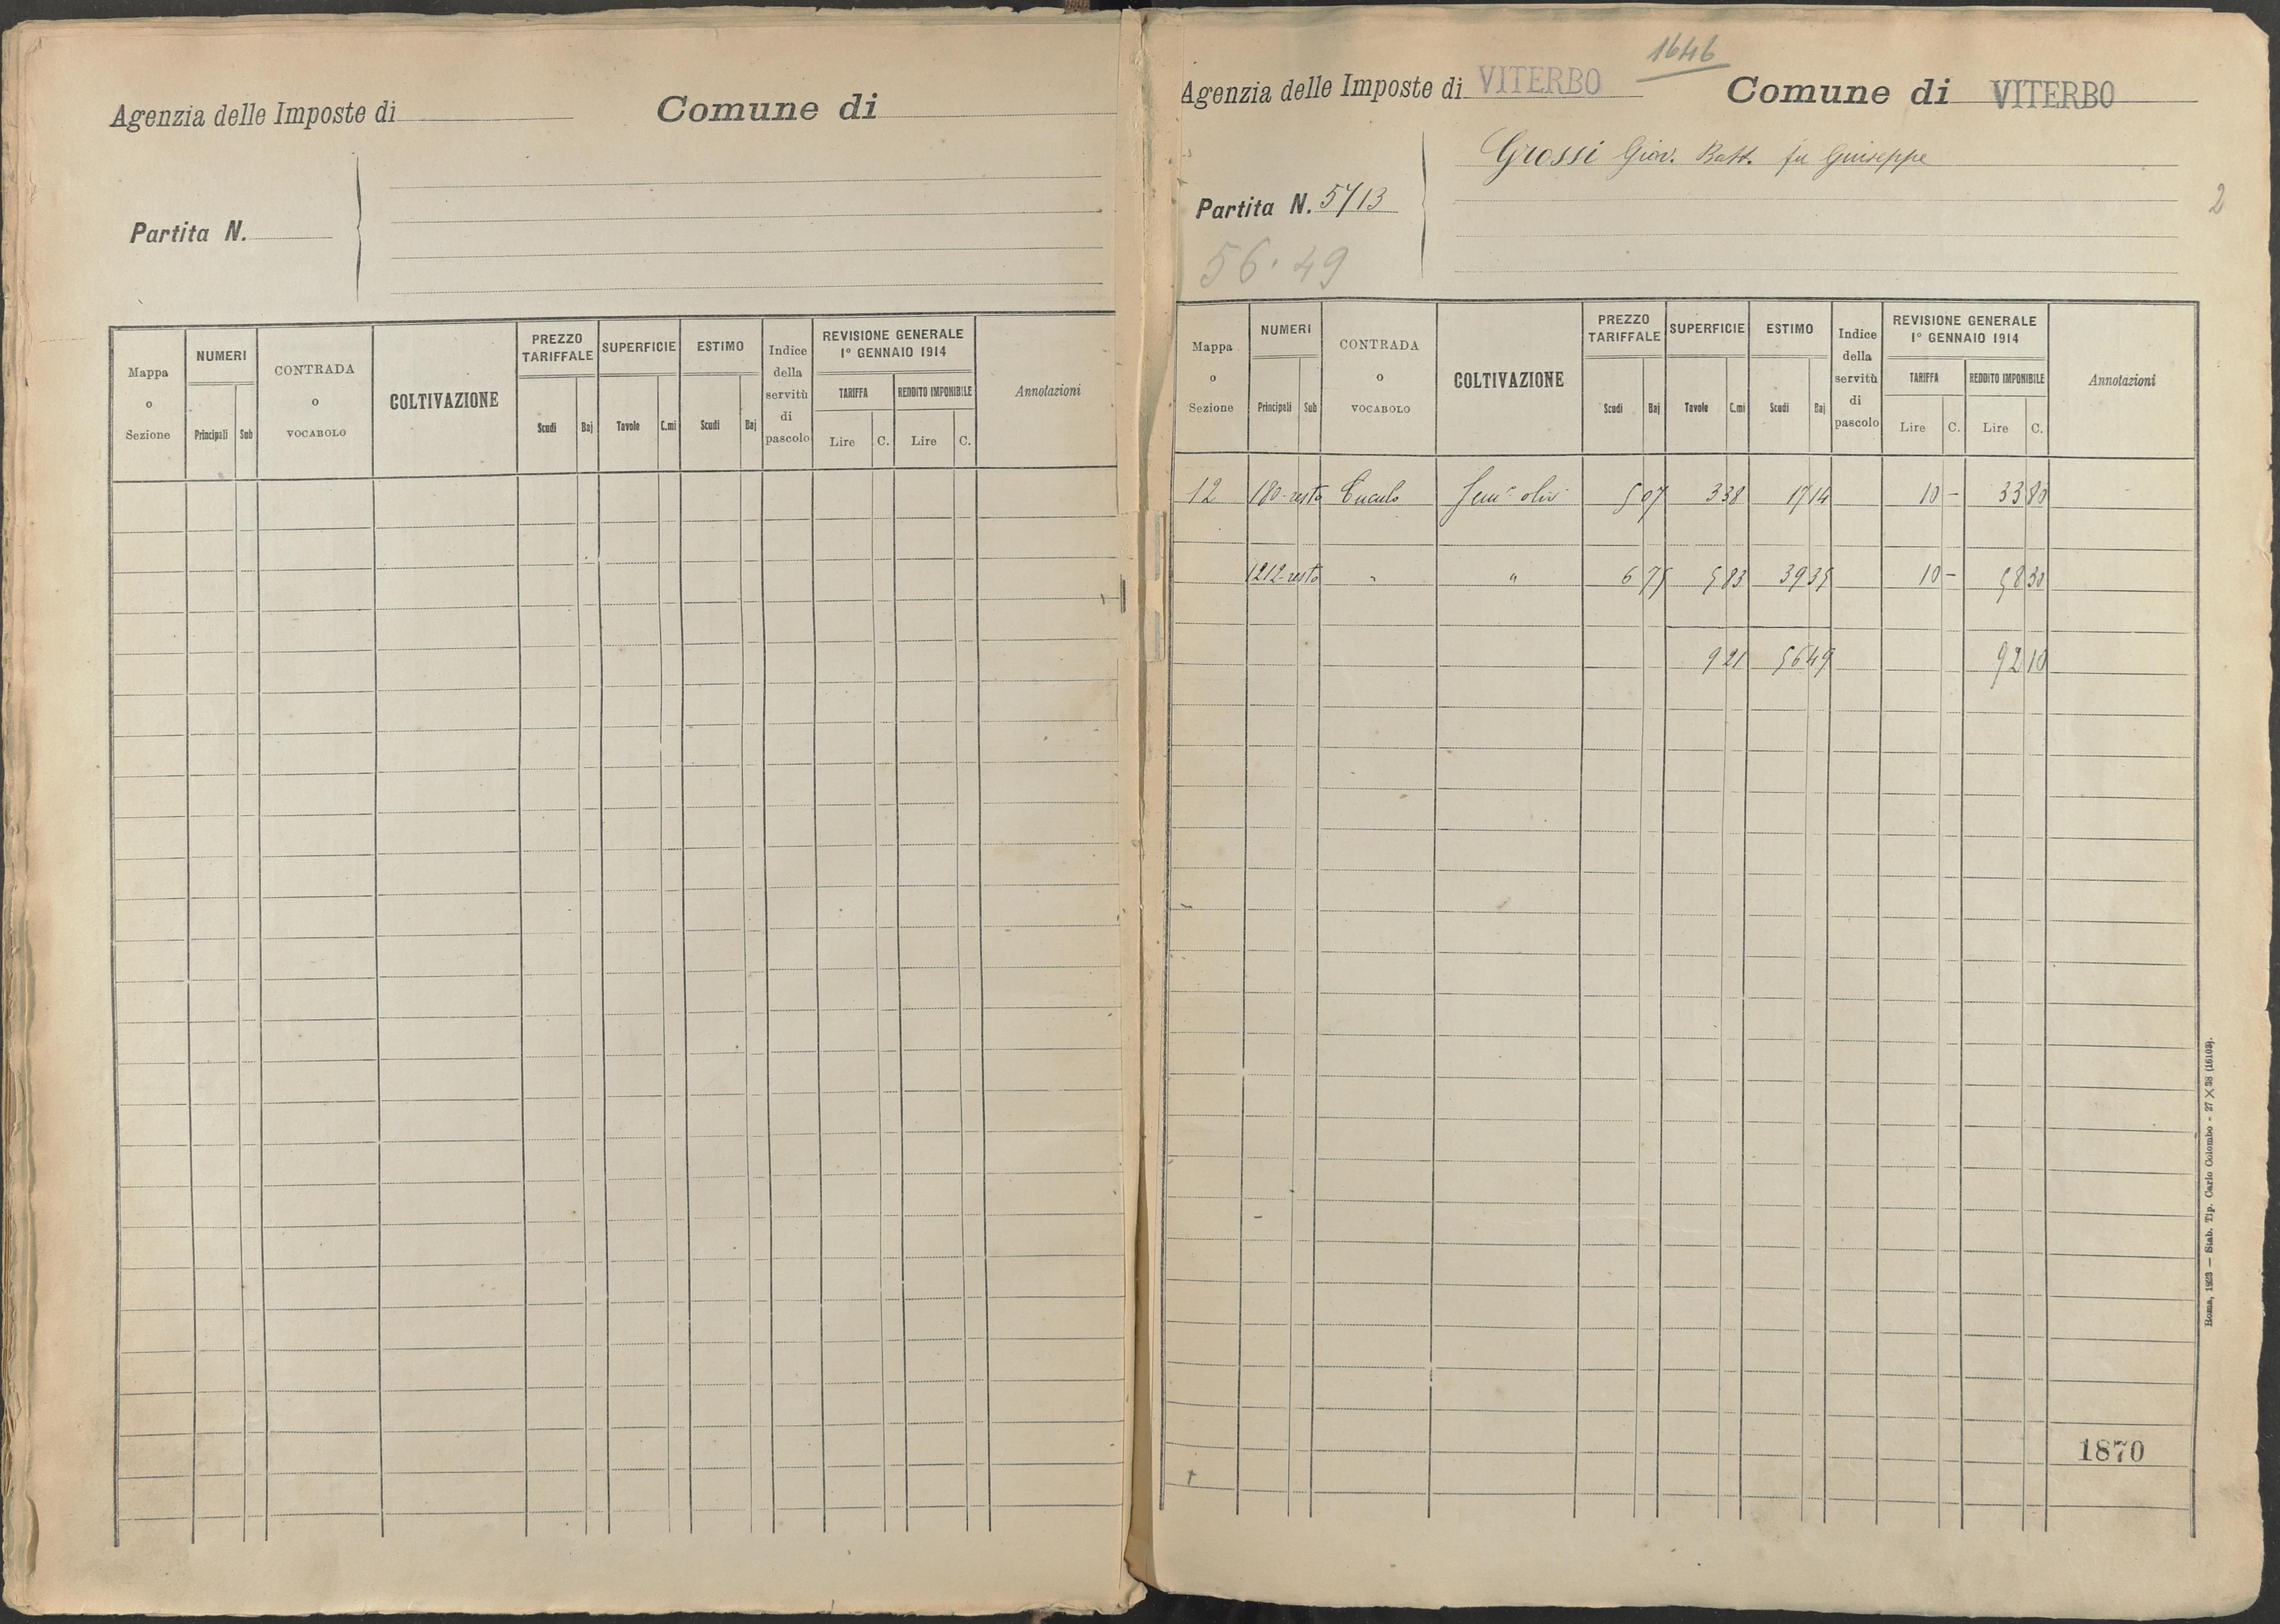 Agenzia delle Imposte di Comune di
Partita N.
Mappa o Sezione NUMERI Principali Sub CONTRADA o VOCABOLO COLTIVAZIONE PREZZO TARIFFALE Scudi Baj SUPERFICIE Tavole C.mi ESTIMO Scudi Baj Indice della servitù di pascolo REVISIONE GENERALE 1° GENNAIO 1914 TARIFFA Lire C. REDDITO IMPONIBILE Lire C. Annotazioni
1646
Agenzia delle Imposte di VITERBO Comune di VITERBO
Grossi Giov. Batt. fu Giuseppe
Partita N. 5713
2
56.49
Mappa o Sezione NUMERI Principali Sub CONTRADA o VOCABOLO COLTIVAZIONE PREZZO TARIFFALE Scudi Baj SUPERFICIE Tavole C.mi ESTIMO Scudi Baj Indice della servitù di pascolo REVISIONE GENERALE 1° GENNAIO 1914 TARIFFA Lire C. REDDITO IMPONIBILE Lire C. Annotazioni
12 180-resto Cuculo Sem.o oliv. 5 07 3 38 17 14 10 - 33 80
1212-resto " " 6 75 5 83 39 35 10 - 58 30
9 21 56 49 92 10
1870
Roma, 1923 — Stab. Tip. Carlo Colombo - 27 X 38 (16103).